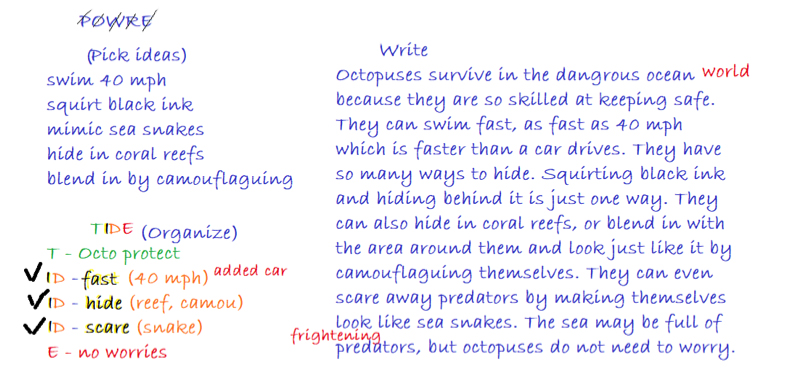 POWRE
(Pick ideas)
swim 40 mph
squirt black ink
mimic sea snakes
hide in coral reefs
blend in by camouflaguing
TIDE (Organize)
T - Octo protect
ID - fast (40 mph) added car
ID - hide (reef, camou)
ID - scare (snake)
E - no worries
Write
Octopuses survive in the dangrous ocean world
because they are so skilled at keeping safe.
They can swim fast, as fast as 40 mph
which is faster than a car drives. They have
so many ways to hide. Squirting black ink
and hiding behind it is just one way. They
can also hide in coral reefs, or blend in with
the area around them and look just like it by
camouflaguing themselves. They can even
scare away predators by making themselves
look like sea snakes. The sea may be full of
frightening
predators, but octopuses do not need to worry.